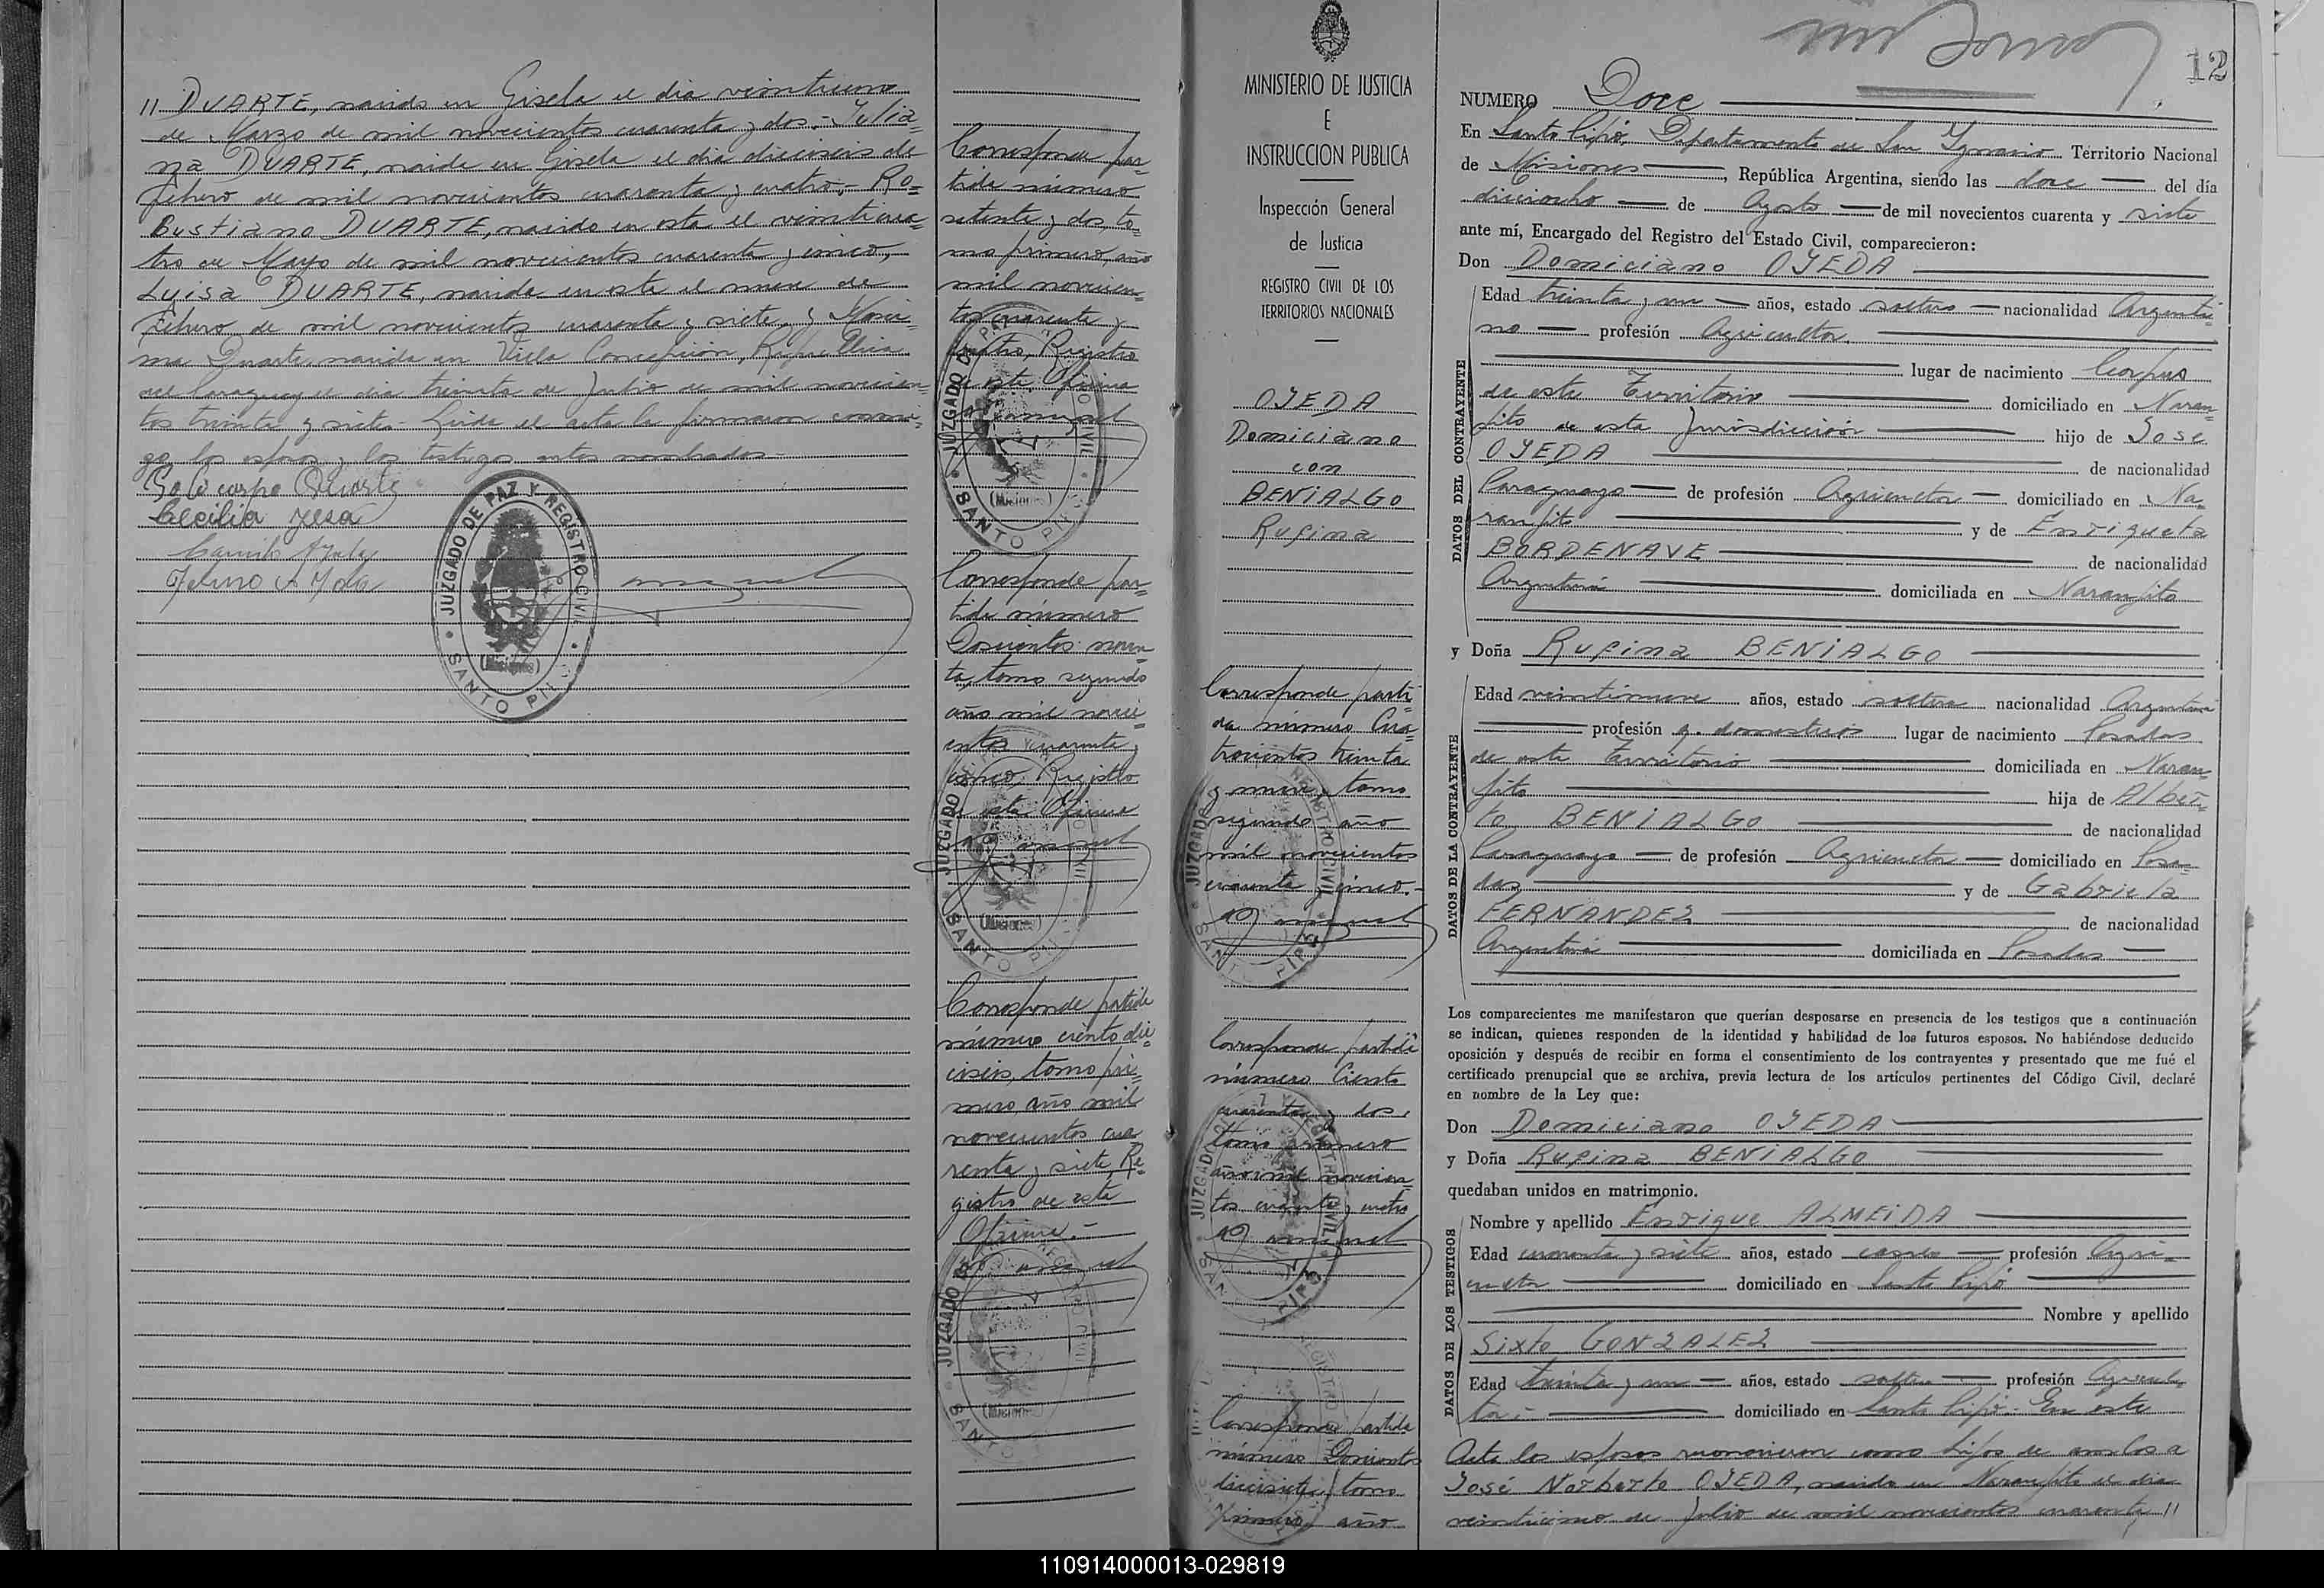 // DUARTE, nacido en Gisela el dia veintiuno
de Marzo de mil novecientos cuarenta y dos.- Julia=
na DUARTE, nacida en Gisela el dia dieciseis de
Febrero de mil novecientos cuarenta y cuatro,- Ro=
bustiano DUARTE, nacido en esta el veinticua=
tro de Mayo de mil novecientos cuarenta y cinco,
Luisa DUARTE, nacida en esta el nueve de
Febrero de mil novecientos cuarenta y siete, y Maxi=
ma Duarte, nacida en Villa Concepción, República
del Paraguay el dia treinta de Julio de mil novecien=
tos treinta y siete.- Leida el acta la firmaron conmi=
go, los esposos y los testigos antes nombrados.-
Policarpo Duarte
Cecilia
Camilo
JUZGADO DE PAZ Y REGISTRO CIVIL
(Misiones)
SANTO PIPÓ
Corresponde par=
tida número
setenta y dos, to=
mo primero, año
mil novecien=
tos cuarenta y
cuatro, Registro
de esta Oficina
JUZGADO DE PAZ
CIVIL
(Misiones)
SANTO PI
Corresponde par=
tida número
Doscientos noven=
ta, tomo segundo
año mil nove=
cientos cuarenta y
cinco, Registro
de esta Oficina
JUZGADO
(Misiones)
SANTO PI
Corresponde partida
número ciento die=
ciseis, tomo pri=
mero, año mil
novecientos cua
renta y siete, Re=
gistro de esta
Oficina.-
JUZGADO
(Misiones)
SANTO
MINISTERIO DE JUSTICIA
E
INSTRUCCION PUBLICA
Inspección General
de Justicia
REGISTRO CIVIL DE LOS
TERRITORIOS NACIONALES
OJEDA
Domiciano
con
BENIALGO
Rufina
Corresponde parti=
da número Cua=
trocientos treinta
y nueve, tomo
segundo año
mil novecientos
cuarenta y cinco.-
JUZGADO
REGISTRO CIVIL
SANT
PIPÓ
Corresponde partida
número Ciento
cuarenta y dos,
tomo primero
año mil novecien=
tos cuarenta y cuatro
JUZGADO
REGISTRO CIVIL
SAN
PIPÓ
Corresponde partida
número Doscientos
diecisiete, tomo
primero, año
12
NUMERO Doce
En Santo Pipó, Departamento de San Ygnacio Territorio Nacional
de Misiones, República Argentina, siendo las doce del día
dieciocho de Agosto de mil novecientos cuarenta y siete
ante mí, Encargado del Registro del Estado Civil, comparecieron:
Don Domiciano OJEDA
DATOS DEL CONTRAYENTE
Edad treinta y un años, estado soltero nacionalidad Argenti=
no profesión Agricultor.
lugar de nacimiento Corpus
de este Territorio domiciliado en Naran=
jito de esta Jurisdicción hijo de Jose
OJEDA de nacionalidad
Paraguayo de profesión Agricultor domiciliado en Na=
ranjito y de Enriqueta
BORDENAVE de nacionalidad
Argentina domiciliada en Naranjito
y Doña Rufina BENIALGO
DATOS DE LA CONTRAYENTE
Edad veintinueve años, estado soltera nacionalidad Argentina
profesión q. domesticos lugar de nacimiento Posadas
de este Territorio domiciliada en Naran=
jito hija de Alber=
to BENIALGO de nacionalidad
Paraguayo de profesión Agricultor domiciliado en Posa=
das y de Gabriela
FERNANDEZ de nacionalidad
Argentina domiciliada en Posadas
Los comparecientes me manifestaron que querían desposarse en presencia de los testigos que a continuación
se indican, quienes responden de la identidad y habilidad de los futuros esposos. No habiéndose deducido
oposición y después de recibir en forma el consentimiento de los contrayentes y presentado que me fué el
certificado prenupcial que se archiva, previa lectura de los artículos pertinentes del Código Civil, declaré
en nombre de la Ley que:
Don Domiciano OJEDA
y Doña Rufina BENIALGO
quedaban unidos en matrimonio.
DATOS DE LOS TESTIGOS
Nombre y apellido Enrique ALMEIDA
Edad cuarenta y siete años, estado casado profesión Agri=
cultor domiciliado en Santo Pipó
Nombre y apellido
Sixto GONZALEZ
Edad treinta y un años, estado soltero profesión Agricul=
tor.- domiciliado en Santo Pipó.- En este
Acto los esposos reconocieron como hijos de ambos a
José Norberto OJEDA, nacido en Naranjito el dia
veinticinco de Julio de mil novecientos cuarenta //
110914000013-029819